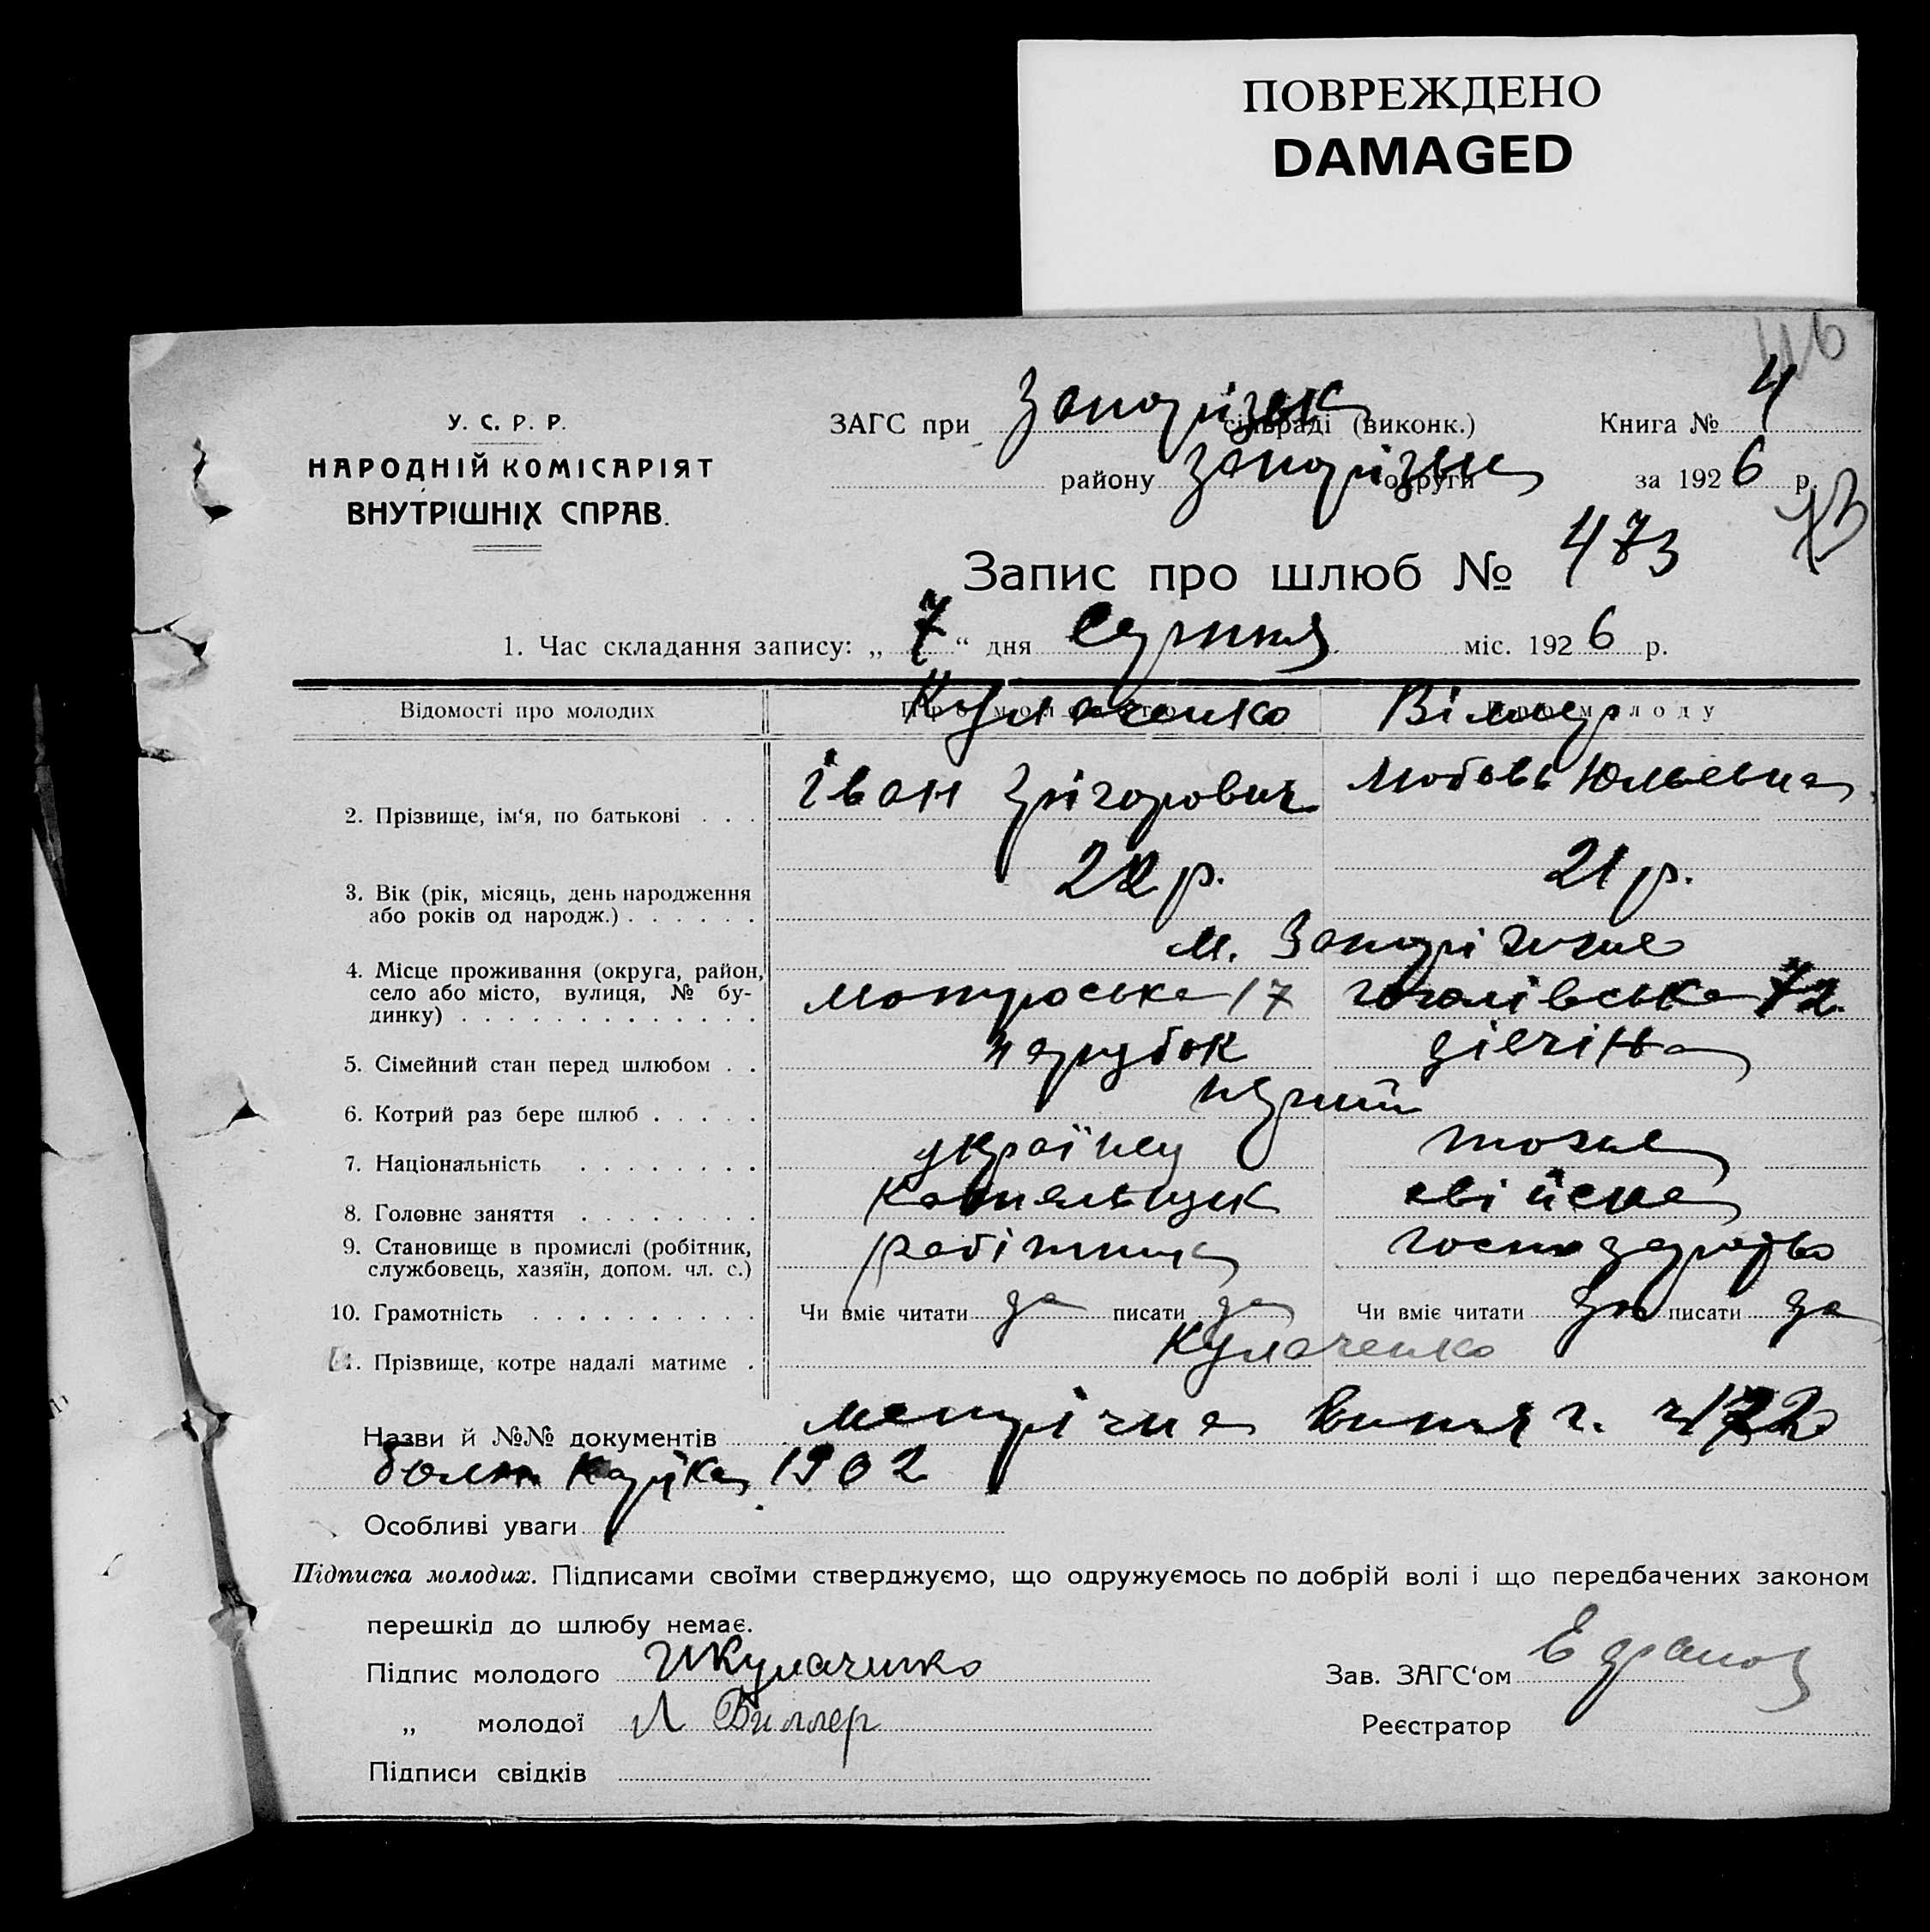 ПОВРЕЖДЕНО
DAMAGED
46
У. С. Р. Р.
НАРОДНІЙ КОМІСАРІЯТ
ВНУТРІШНІХ СПРАВ.
ЗАГС при Запорізьк сільраді (виконк.) Книга № 4
району Запорізьк округи за 1926 р.
Запис про шлюб № 473
1. Час складання запису: „ 7 “ дня Серпня міс. 1926 р.
Відомості про молодих
Кулаченко Віллер
Іван Григорович Любовь Юльевна
2. Прізвище, ім‘я, по батькові . . .
22 р. 21 р.
3. Вік (рік, місяць, день народження
або років од народж.) . . . . . .
м. Запоріжжє
4. Місце проживання (округа, район,
село або місто, вулиця, № бу-
динку) . . . . . . . . . . . . .
Матроська 17 Гоголівська 72
5. Сімейний стан перед шлюбом . . парубок дівчіна
6. Котрий раз бере шлюб . . . . . перший
7. Національність . . . . . . . . українец тоже
8. Головне заняття . . . . . . . . Котельщик свійске
9. Становище в промислі (робітник,
службовець, хазяїн, допом. чл. с.)
робітник господарство
10. Грамотність . . . . . . . . . . Чи вміє читати да писати да Чи вміє читати да писати да
11. Прізвище, котре надалі матиме . Кулаченко
Назви й №№ документів метрична витяг.
1902
Особливі уваги
Підписка молодих. Підписами своїми стверджуємо, що одружуємось по добрій волі і що передбачених законом
перешкід до шлюбу немає.
Підпис молодого И Кулаченко
Зав. ЗАГС‘ом
„ молодої Л Виллер
Реєстратор
Підписи свідків